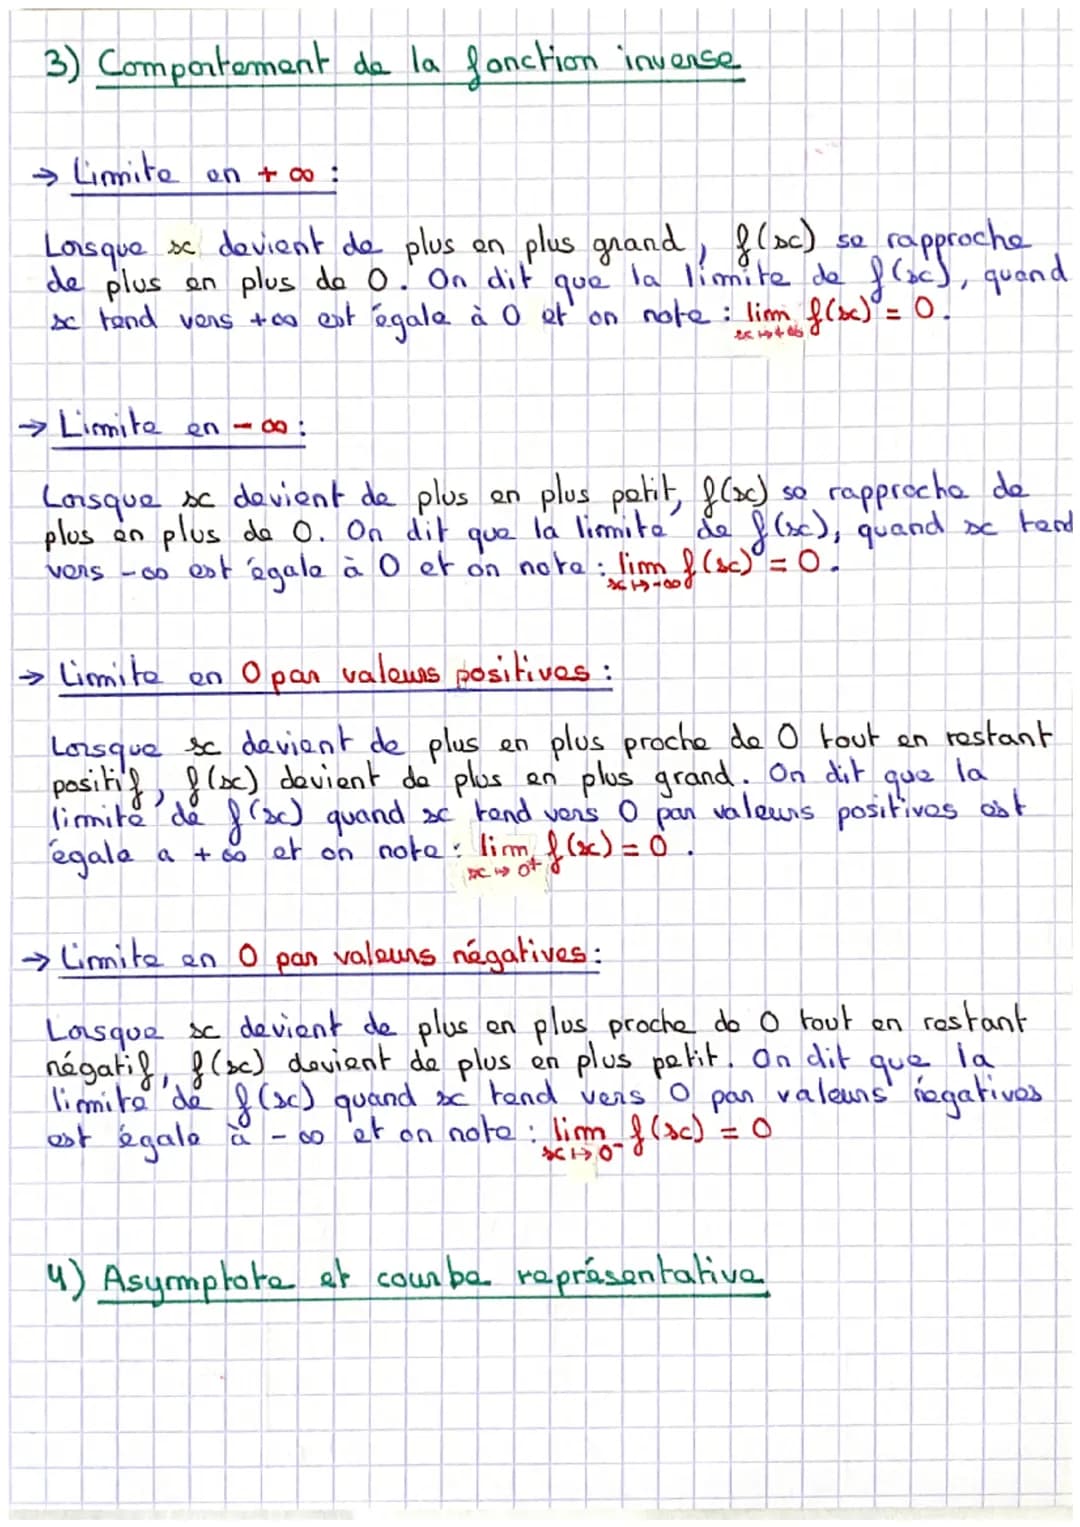 3) Comportement de la fonction inverse
→ Limite en + ∞ :
Lorsque x devient de plus en plus grand, f(x) se rapproche
de plus en plus de 0. On dit que la limite de f(x), quand
x tend vers +∞ est égale à 0 et on note : lim f(x) = 0.
x ↦ +∞
→ Limite en - ∞ :
Lorsque x devient de plus en plus petit, f(x) se rapproche de
plus en plus de 0. On dit que la limite de f(x), quand x tend
vers -∞ est égale à 0 et on note : lim f(x) = 0.
x ↦ -∞
→ Limite en 0 par valeurs positives :
Lorsque x devient de plus en plus proche de 0 tout en restant
positif, f(x) devient de plus en plus grand. On dit que la
limite de f(x) quand x tend vers 0 par valeurs positives est
égale a +∞ et on note : lim f(x) = 0.
x ↦ 0+
→ Limite en 0 par valeurs négatives :
Lorsque x devient de plus en plus proche de 0 tout en restant
négatif, f(x) devient de plus en plus petit. On dit que la
limite de f(x) quand x tend vers 0 par valeurs négatives
est égale à -∞ et on note : lim f(x) = 0
x ↦ 0-
4) Asymptote et courbe représentative